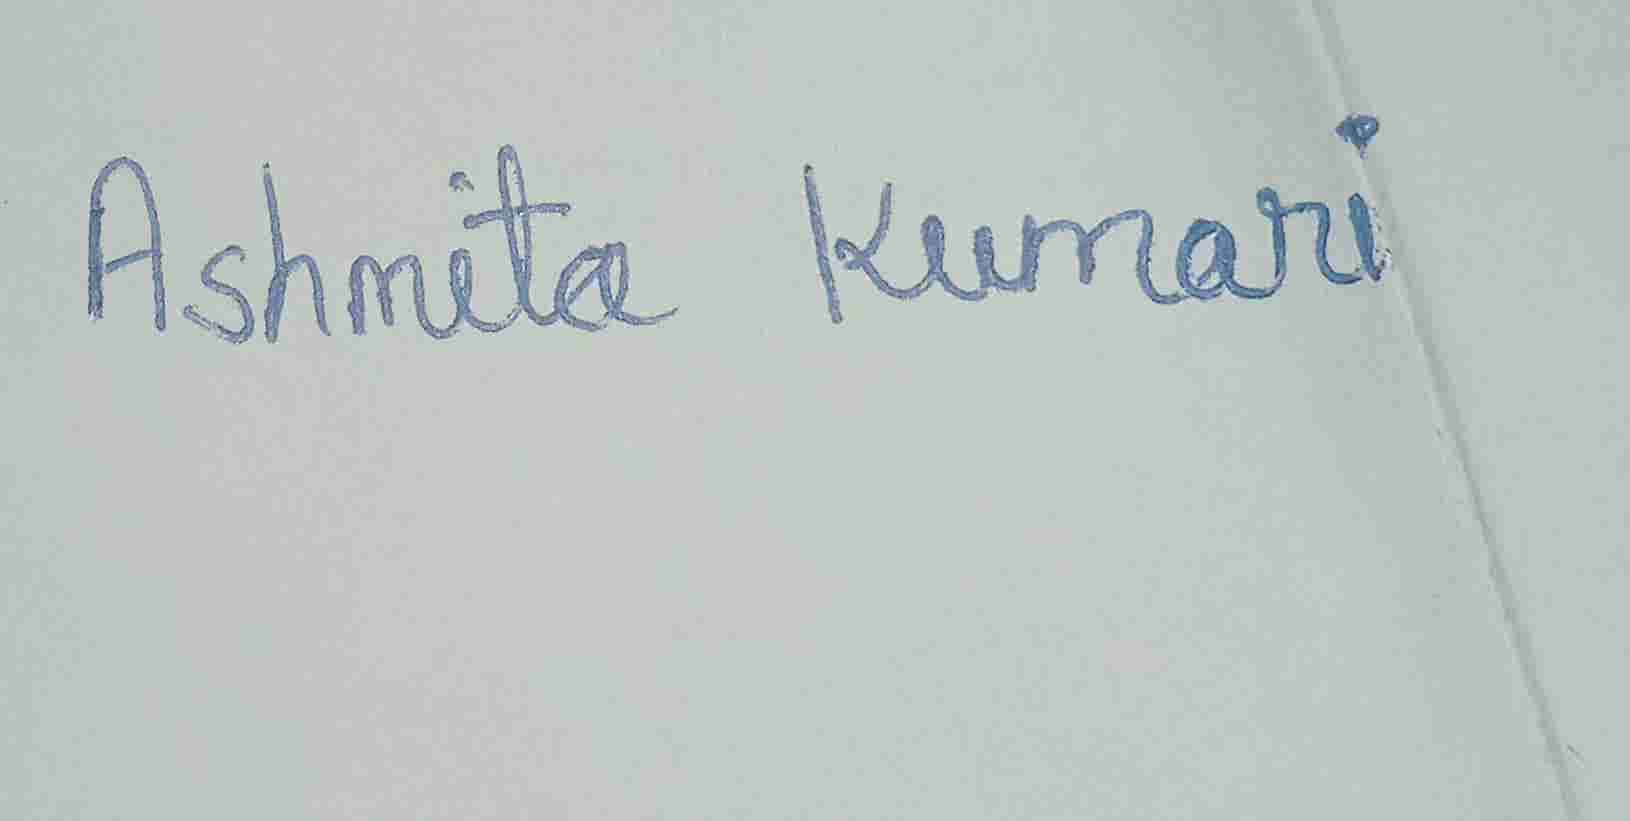 Ashmita Kumari